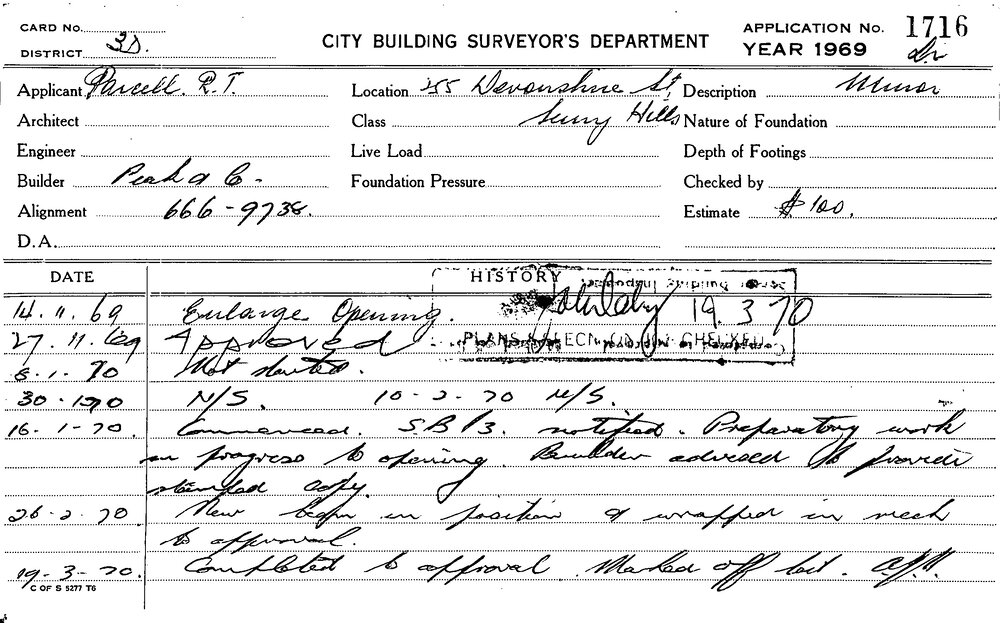 CARD No.
DISTRICT 3D.
CITY BUILDING SURVEYOR'S DEPARTMENT
APPLICATION No. 1716
YEAR 1969
Applicant Purcell. R.T. Location 255 Devonshire St, Description Minor
Architect Class Surry Hills Nature of Foundation
Engineer Live Load Depth of Footings
Builder Peak & Co. Foundation Pressure Checked by
Alignment 666-9738. Estimate $100.
D.A.
DATE HISTORY
14.11.69 Enlarge Opening. 19.3.70
27.11.69 Approved
PLANS
8.1.70 Not started.
30.1.70 N/S. 10-2-70 N/S.
16.1.70. Commenced. S.B/3. notified. Preparatory work
in progress to opening. Builder advised to provide
stamped copy.
26.2.70 New beam in position & wrapped in mesh
to approval.
19.3.70. Completed to approval. Marked off
C OF S 5277 T6